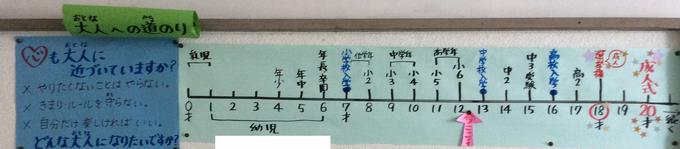 大人への道のり
おとな みち
心も大人に
近づいていますか?
× やりたくないことは やらない。
× きまり・ルールを守らない。
× 自分だけ楽しければいい。
どんな大人になりたいですか?
幼児
年少
年中
年長 卒園
小学校入学
低学年
小2
中学年
小3
小4
高学年
小5
小6
中学校入学
中2
中3 受験
高校入学
高2
選挙権
成人
成人式
0才 1 2 3 4 5 6 7才 8 9 10 11 12 13 14 15 16 17 18才 19 20才
続く
幼児
今ココ